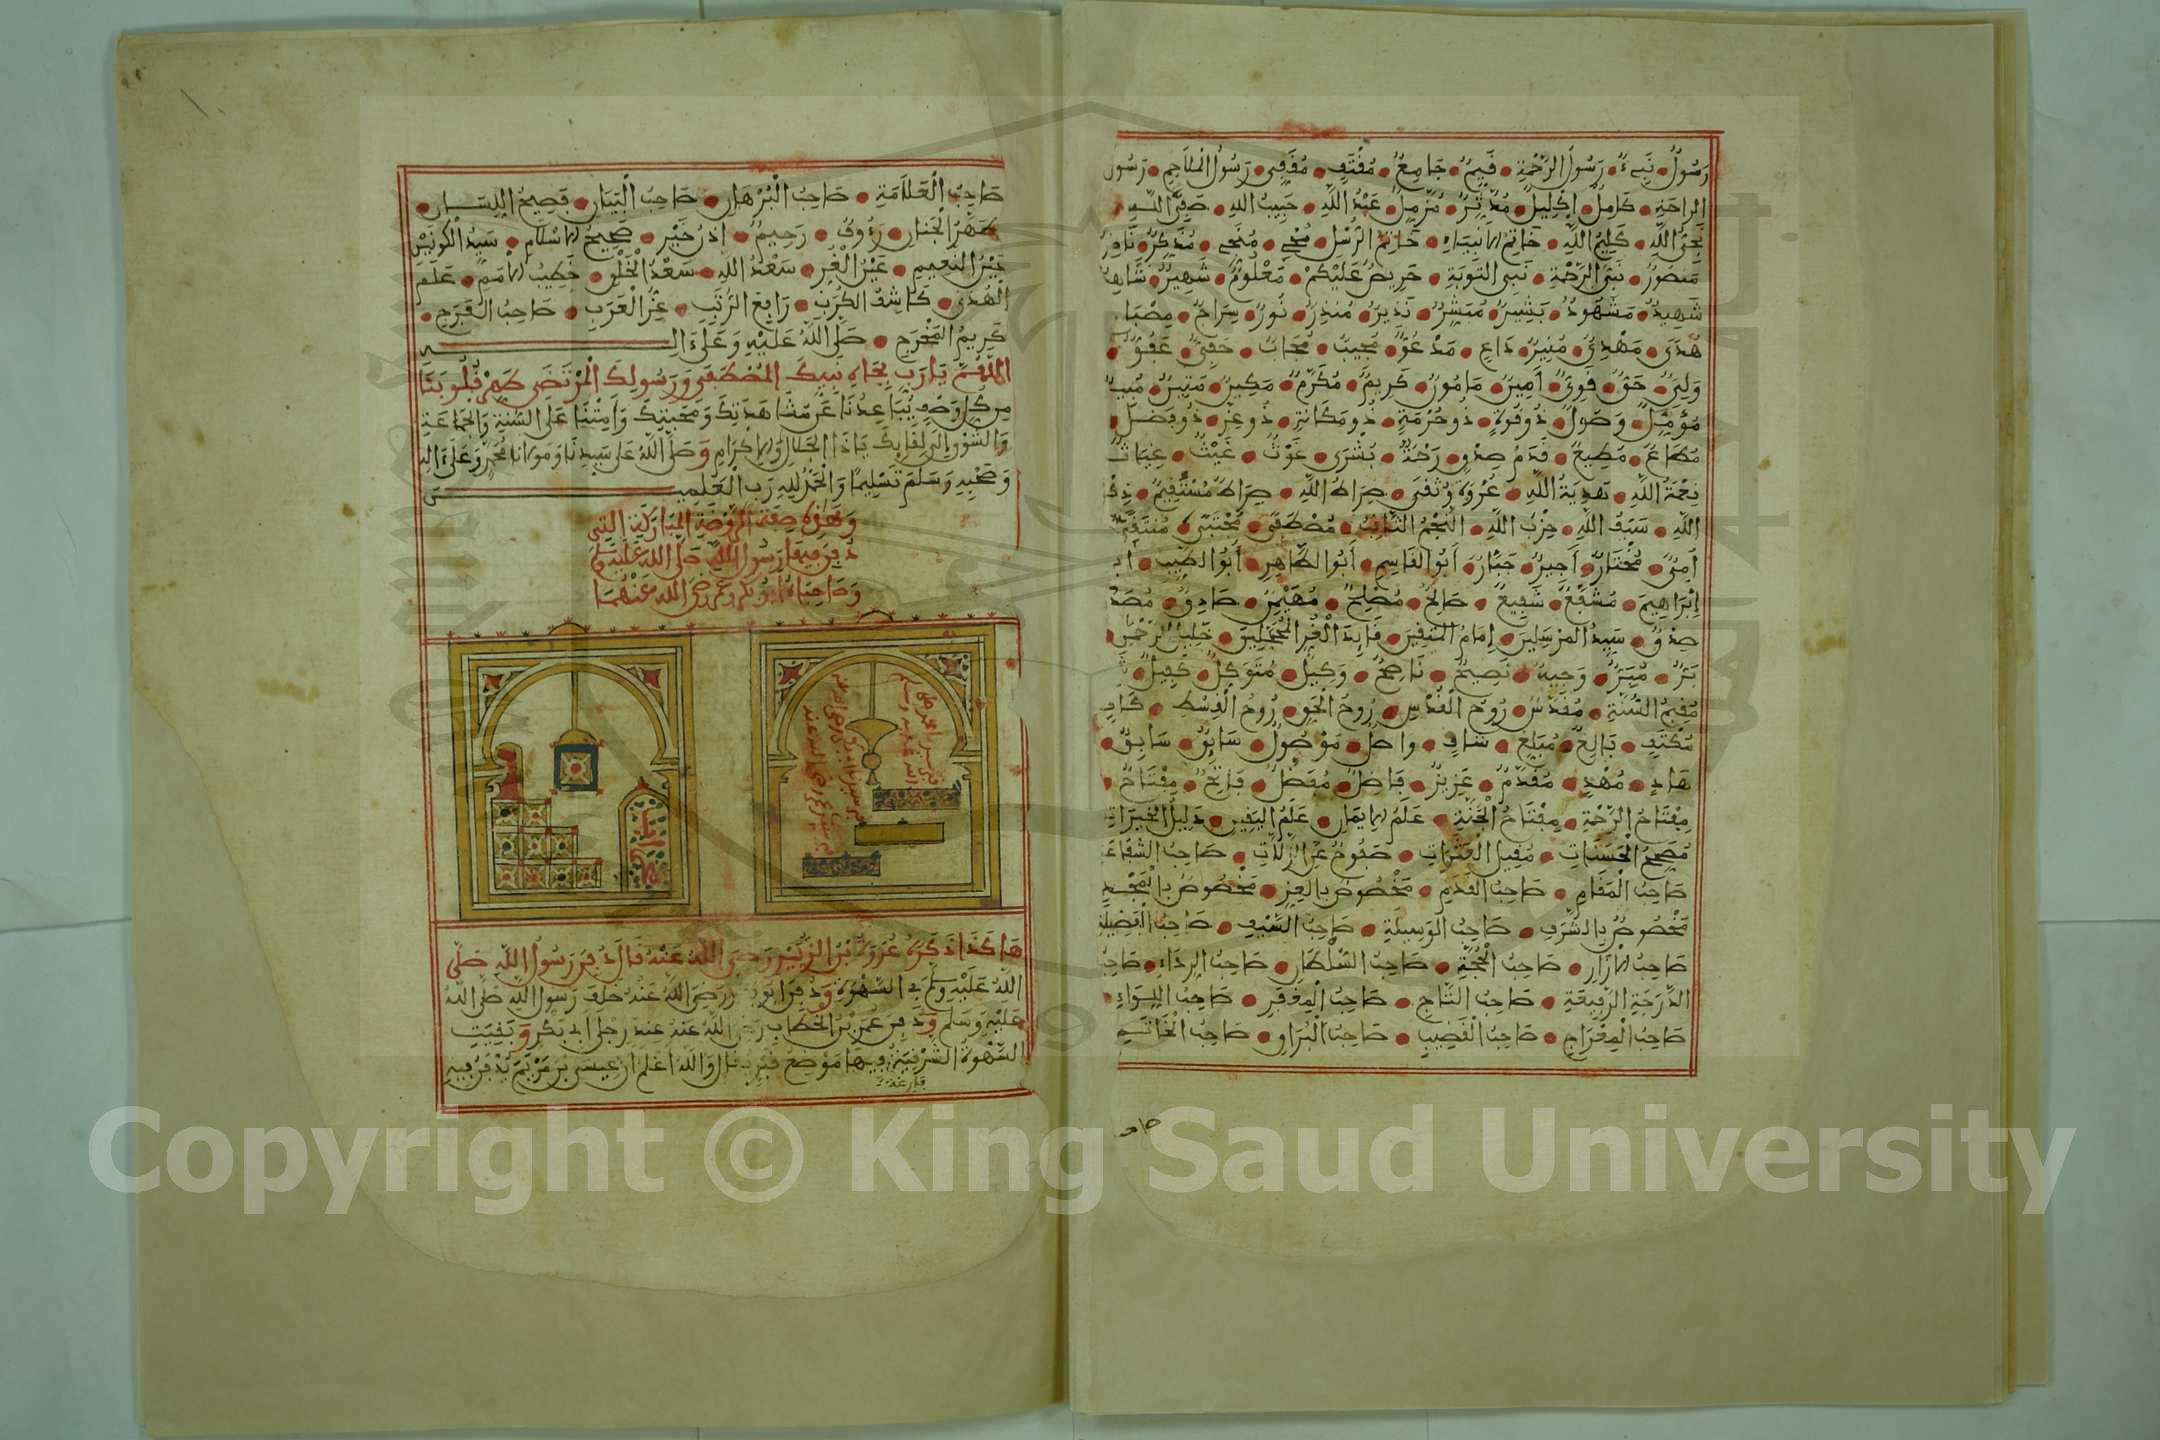 رَسُولٌ نَبِيءٌ رَسُولُ الرَّحْمَةِ قَيِّمٌ جَامِعٌ مُقْتَفٍ مُقَفًّى رَسُولُ الْمَلَاحِمِ رَسُولُ
الرَّاحَةِ كَامِلٌ إِكْلِيلٌ مُدَّثِّرٌ مُزَّمِّلٌ عَبْدُ اللَّهِ حَبِيبُ اللَّهِ صَفِيُّ اللَّهِ
نَجِيُّ اللَّهِ كَلِيمُ اللَّهِ خَاتِمُ الْأَنْبِيَاءِ خَاتِمُ الرُّسُلِ مُحْيٍ مُنْجٍ مُذَكِّرٌ نَاصِرٌ
مَنْصُورٌ نَبِيُّ الرَّحْمَةِ نَبِيُّ التَّوْبَةِ حَرِيصٌ عَلَيْكُمْ مَعْلُومٌ شَهِيرٌ شَاهِدٌ
شَهِيدٌ مَشْهُودٌ بَشِيرٌ مُبَشِّرٌ نَذِيرٌ مُنْذِرٌ نُورٌ سِرَاجٌ مِصْبَاحٌ
هُدًى مَهْدِيٌّ مُنِيرٌ دَاعٍ مَدْعُوٌّ مُجِيبٌ مُجَابٌ حَفِيٌّ عَفُوٌّ
وَلِيٌّ حَقٌّ قَوِيٌّ أَمِينٌ مَأْمُونٌ كَرِيمٌ مُكَرَّمٌ مَكِينٌ مَتِينٌ مُبِينٌ
مُؤَمَّلٌ وَصُولٌ ذُو قُوَّةٍ ذُو حُرْمَةٍ ذُو مَكَانَةٍ ذُو عِزٍّ ذُو فَضْلٍ
مُطَاعٌ مُطِيعٌ قَدَمُ صِدْقٍ رَحْمَةٌ بُشْرَى غَوْثٌ غَيْثٌ غِيَاثٌ
نِعْمَةُ اللَّهِ هَدِيَّةُ اللَّهِ عُرْوَةٌ وُثْقَى صِرَاطُ اللَّهِ صِرَاطٌ مُسْتَقِيمٌ ذِكْرُ
اللَّهِ سَيْفُ اللَّهِ حِزْبُ اللَّهِ النَّجْمُ الثَّاقِبُ مُصْطَفًى مُجْتَبًى مُنْتَقًى
أُمِّيٌّ مُخْتَارٌ أَجِيرٌ جَبَّارٌ أَبُو الْقَاسِمِ أَبُو الطَّاهِرِ أَبُو الطَّيِّبِ أَبُو
إِبْرَاهِيمَ مُشَفَّعٌ شَفِيعٌ صَالِحٌ مُصْلِحٌ مُهَيْمِنٌ صَادِقٌ مُصَدَّقٌ
صِدْقٌ سَيِّدُ الْمُرْسَلِينَ إِمَامُ الْمُتَّقِينَ قَائِدُ الْغُرِّ الْمُحَجَّلِينَ خَلِيلُ الرَّحْمَنِ
بَرٌّ مَبَرٌّ وَجِيهٌ نَصِيحٌ نَاصِحٌ وَكِيلٌ مُتَوَكِّلٌ كَفِيلٌ
مُقِيمُ السُّنَّةِ مُقَدَّسٌ رُوحُ الْقُدُسِ رُوحُ الْحَقِّ رُوحُ الْقِسْطِ كَافٍ
مُكْتَفٍ بَالِغٌ مُبَلِّغٌ شَافٍ وَاصِلٌ مَوْصُولٌ سَابِقٌ سَائِقٌ
هَادٍ مُهْدٍ مُقَدَّمٌ عَزِيزٌ فَاضِلٌ مُفَضَّلٌ فَاتِحٌ مِفْتَاحٌ
مِفْتَاحُ الرَّحْمَةِ مِفْتَاحُ الْجَنَّةِ عَلَمُ الْإِيمَانِ عَلَمُ الْيَقِينِ دَلِيلُ الْخَيْرَاتِ
مُصَحِّحُ الْحَسَنَاتِ مُقِيلُ الْعَثَرَاتِ صَفُوحٌ عَنِ الزَّلَّاتِ صَاحِبُ الشَّفَاعَةِ
صَاحِبُ الْمَقَامِ صَاحِبُ الْقَدَمِ مَخْصُوصٌ بِالْعِزِّ مَخْصُوصٌ بِالْمَجْدِ
مَخْصُوصٌ بِالشَّرَفِ صَاحِبُ الْوَسِيلَةِ صَاحِبُ السَّيْفِ صَاحِبُ الْفَضِيلَةِ
صَاحِبُ الْإِزَارِ صَاحِبُ الْحُجَّةِ صَاحِبُ السُّلْطَانِ صَاحِبُ الرِّدَاءِ صَاحِبُ
الدَّرَجَةِ الرَّفِيعَةِ صَاحِبُ التَّاجِ صَاحِبُ الْمِغْفَرِ صَاحِبُ اللِّوَاءِ
صَاحِبُ الْمِعْرَاجِ صَاحِبُ الْقَضِيبِ صَاحِبُ الْبُرَاقِ صَاحِبُ الْخَاتَمِ
صَاحِبُ الْعَلَامَةِ صَاحِبُ الْبُرْهَانِ صَاحِبُ الْبَيَانِ فَصِيحُ اللِّسَانِ
مُطَهَّرُ الْجَنَانِ رَءُوفٌ رَحِيمٌ أُذُنُ خَيْرٍ صَحِيحُ الْإِسْلَامِ سَيِّدُ الْكَوْنَيْنِ
عَيْنُ النَّعِيمِ عَيْنُ الْغُرِّ سَعْدُ اللَّهِ سَعْدُ الْخَلْقِ خَطِيبُ الْأُمَمِ عَلَمُ
الْهُدَى كَاشِفُ الْكُرَبِ رَافِعُ الرُّتَبِ عِزُّ الْعَرَبِ صَاحِبُ الْفَرَجِ
كَرِيمُ الْمَخْرَجِ صَلَّى اللَّهُ عَلَيْهِ وَعَلَى آلِهِ
اللَّهُمَّ يَا رَبِّ بِجَاهِ نَبِيِّكَ الْمُصْطَفَى وَرَسُولِكَ الْمُرْتَضَى طَهِّرْ قُلُوبَنَا
مِنْ كُلِّ وَصْفٍ يُبَاعِدُنَا عَنْ مُشَاهَدَتِكَ وَمَحَبَّتِكَ وَأَمِتْنَا عَلَى السُّنَّةِ وَالْجَمَاعَةِ
وَالشَّوْقِ إِلَى لِقَائِكَ يَا ذَا الْجَلَالِ وَالْإِكْرَامِ وَصَلَّى اللَّهُ عَلَى سَيِّدِنَا وَمَوْلَانَا مُحَمَّدٍ وَعَلَى آلِهِ
وَصَحْبِهِ وَسَلَّمَ تَسْلِيمًا وَالْحَمْدُ لِلَّهِ رَبِّ الْعَلَمِينَ
وَهَذِهِ صِفَةُ الرَّوْضَةِ الْمُبَارَكَةِ الَّتِي
دُفِنَ فِيهَا رَسُولُ اللَّهِ صَلَّى اللَّهُ عَلَيْهِ وَسَلَّمَ
وَصَاحِبَاهُ أَبُو بَكْرٍ وَعُمَرُ رَضِيَ اللَّهُ عَنْهُمَا
هَاكَذَا ذَكَرَهُ عُرْوَةُ بْنُ الزُّبَيْرِ رَضِيَ اللَّهُ عَنْهُ قَالَ دُفِنَ رَسُولُ اللَّهِ صَلَّى
اللَّهُ عَلَيْهِ وَسَلَّمَ فِي السَّهْوَةِ وَدُفِنَ أَبُو بَكْرٍ رَضِيَ اللَّهُ عَنْهُ خَلْفَ رَسُولِ اللَّهِ صَلَّى اللَّهُ
عَلَيْهِ وَسَلَّمَ وَدُفِنَ عُمَرُ بْنُ الْخَطَّابِ رَضِيَ اللَّهُ عَنْهُ عِنْدَ رِجْلَيْ أَبِي بَكْرٍ وَبَقِيَتِ
السَّهْوَةُ الشَّرْقِيَّةُ فِيهَا مَوْضِعُ قَبْرٍ يُقَالُ وَاللَّهُ أَعْلَمُ أَنَّ عِيسَى بْنَ مَرْيَمَ يُدْفَنُ فِيهِ
فارغة
صاحب
Copyright © King Saud University